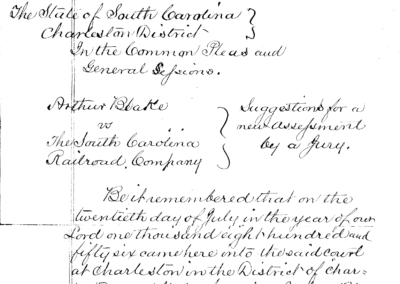 The State of South Carolina }
Charleston District
In the Common Pleas and
General Sessions.
Arthur Blake } Suggestions for a
vs new assessment
The South Carolina by a Jury.
Railroad Company
Be it remembered that on the
twentieth day of July in the year of our
Lord one thousand eight hundred and
fifty six came here into the said court
at Charleston in the District of Char-